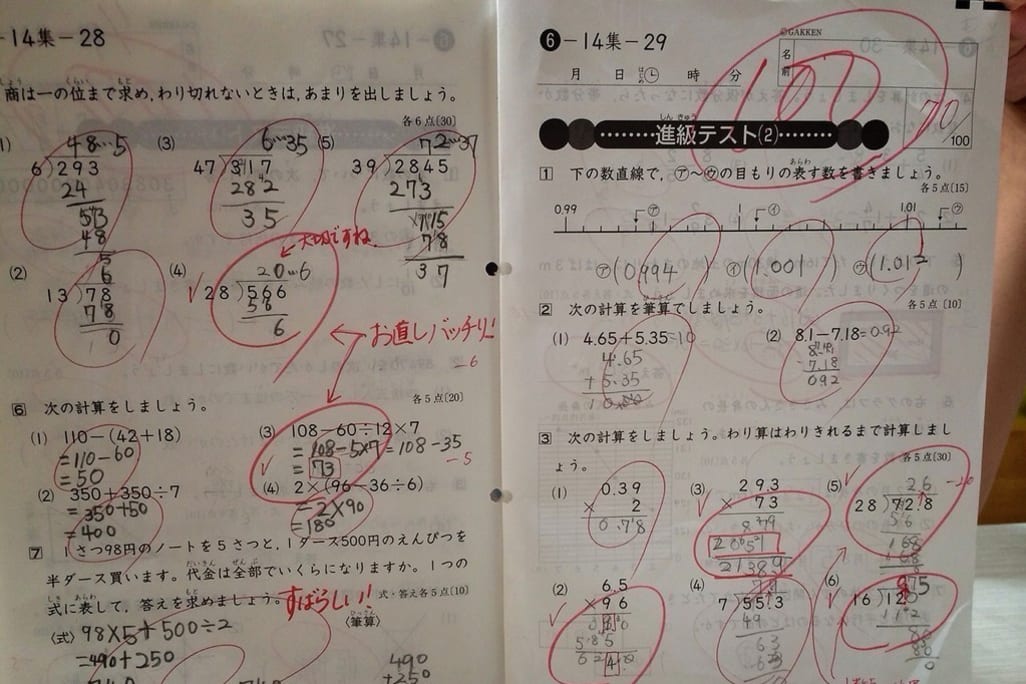 -14集-28
商は一の位まで求め,わり切れないときは,あまりを出しましょう。
各6点[30]
48…5
6)293
24
53
48
5
(3)
6…35
47)317
282
35
(5)
72…37
39)2845
273
115
78
37
(2)
6
13)78
78
0
(4)
20…6
28)566
56
6
大切ですね。
お直しバッチリ!
-6
6 次の計算をしましょう。
各5点[20]
(1) 110-(42+18)
=110-60
=50
(2) 350+350÷7
=350+50
=400
(3) 108-60÷12×7
=108-5×7=108-35
=73
-5
(4) 2×(96-36÷6)
=2×90
=180
7 1さつ98円のノートを5さつと,1ダース500円のえんぴつを
半ダース買います。代金は全部でいくらになりますか。1つの
式に表して,答えを求めましょう。
すばらしい!!
式・答え各5点[10]
〈式〉 98×5+500÷2
=490+250
〈筆算〉
490
+250
6-14集-29
©GAKKEN
名前
月 日 はじめ 時 分
100
70
/100
進級テスト(2)
1 下の数直線で,㋐〜㋒の目もりの表す数を書きましょう。
各5点[15]
0.99 ㋐ 1 ㋑ 1.01 ㋒
㋐(0.994) ㋑(1.001) ㋒(1.012)
2 次の計算を筆算でしましょう。
各5点[10]
(1) 4.65+5.35=10
4.65
+5.35
10.00
(2) 8.1-7.18=0.92
7.18
092
3 次の計算をしましょう。わり算はわりきれるまで計算しまし
ょう。
各5点[30]
(1)
0.39
× 2
0.78
(3)
293
× 73
879
2051
21389
(5)
26
28)72.8
56
168
168
(2)
6.5
×96
585
(4)
7)55.3
49
63
63
(6)
75
16)12
112
80
80
0